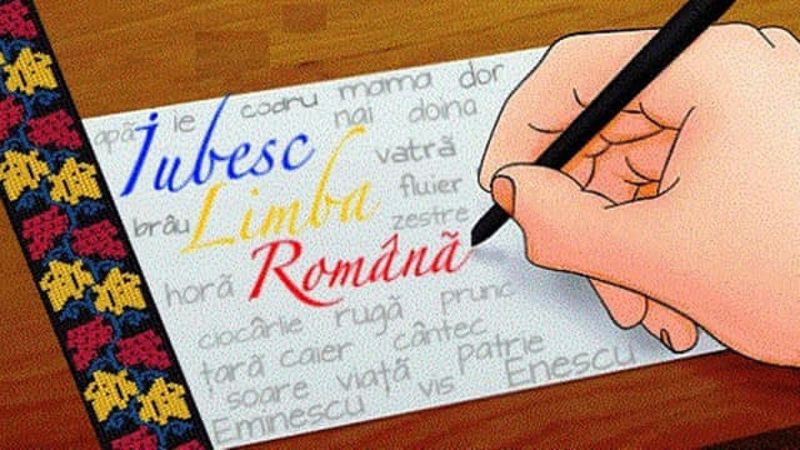 apă ie codru mama dor
nai doina
Iubesc vatră
Limba fluier
brâu zestre
Română
horă
ciocârlie rugă prunc
țară caier cântec
soare viață patrie
Eminescu vis Enescu